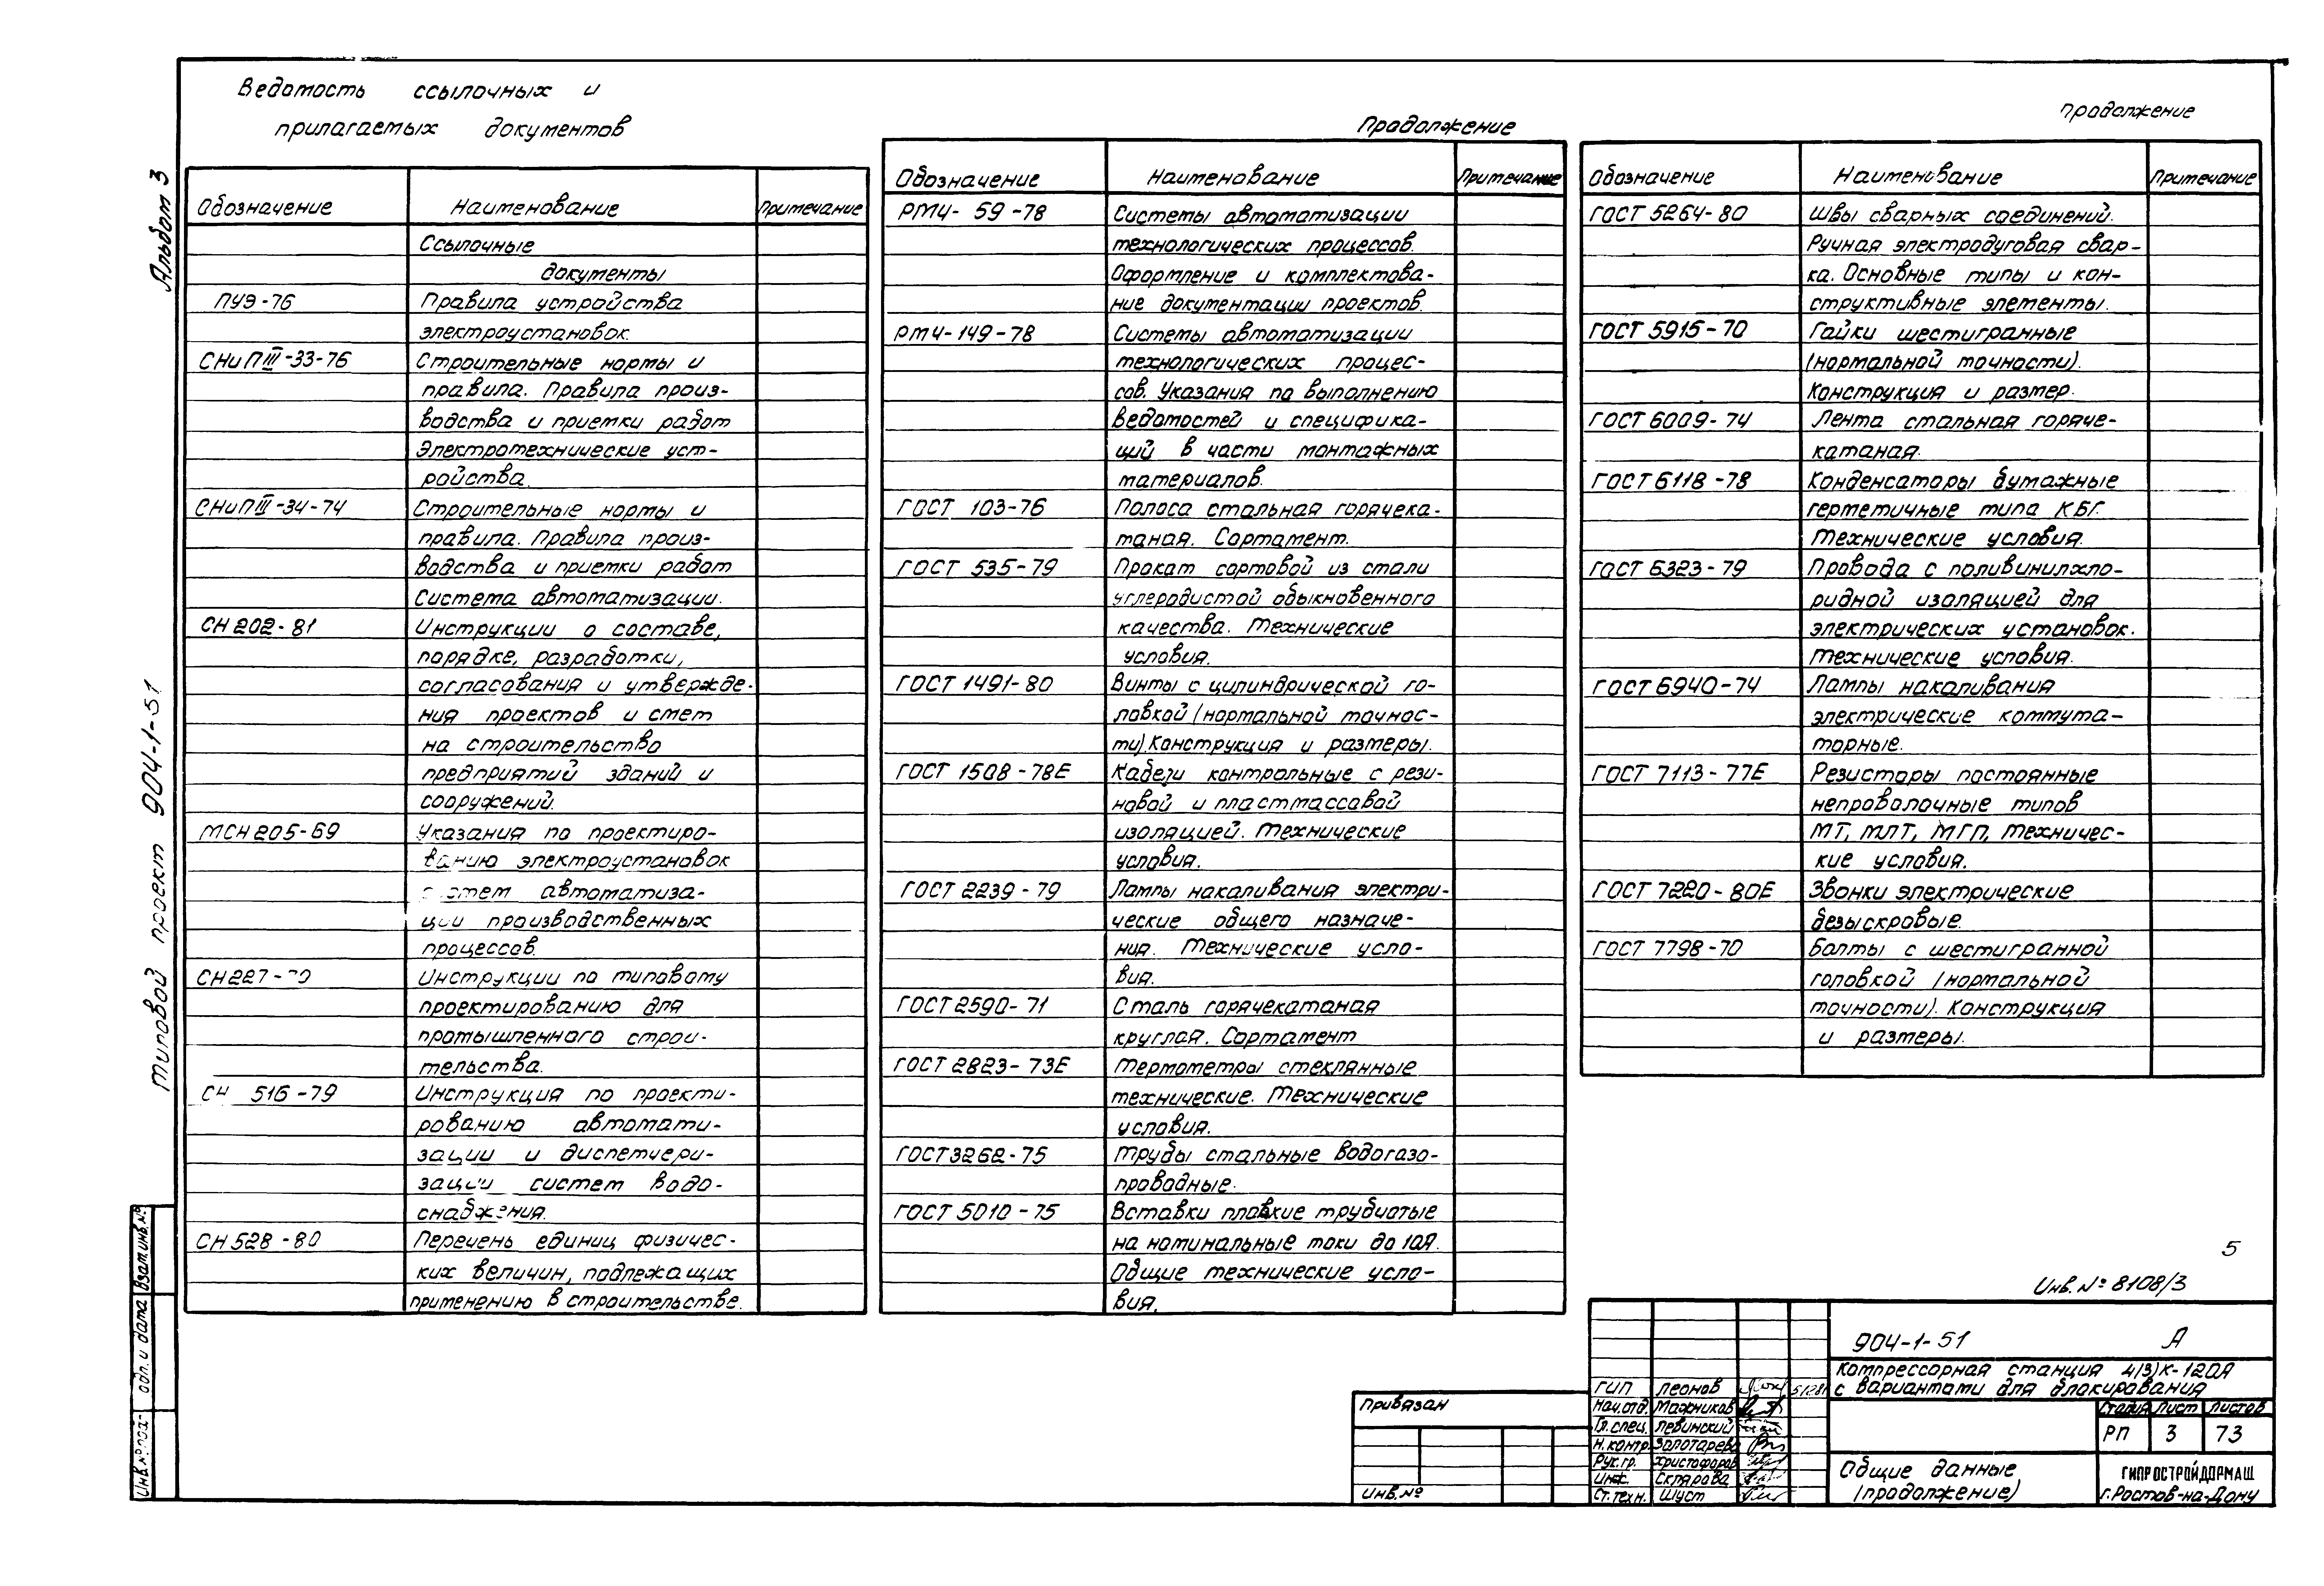 Ведомость ссылочных и
прилагаемых документов
Обозначение Наименование Примечание
Ссылочные
документы
ПУЭ-76 Правила устройства
электроустановок.
СНиП III-33-76 Строительные нормы и
правила. Правила произ-
водства и приемки работ
Электротехнические уст-
ройства.
СНиП III-34-74 Строительные нормы и
правила. Правила произ-
водства и приемки работ
Система автоматизации.
СН 202-81 Инструкции о составе,
порядке, разработки,
согласования и утвержде-
ния проектов и смет
на строительство
предприятий зданий и
сооружений.
МСН 205-69 Указания по проектиро-
ванию электроустановок
систем автоматиза-
ции производственных
процессов.
СН 227- Инструкции по типовому
проектированию для
промышленного строи-
тельства.
СН 516-79 Инструкция по проекти-
рованию автомати-
зации и диспетчери-
зации систем водо-
снабжения.
СН 528-80 Перечень единиц физичес-
ких величин, подлежащих
применению в строительстве.
Продолжение
Обозначение Наименование Примечание
РМ4-59-78 Системы автоматизации
технологических процессов.
Оформление и комплектова-
ние документации проектов.
РМ4-149-78 Системы автоматизации
технологических процес-
сов. Указания по выполнению
ведомостей и специфика-
ций в части монтажных
материалов.
ГОСТ 103-76 Полоса стальная горячека-
таная. Сортамент.
ГОСТ 535-79 Прокат сортовой из стали
углеродистой обыкновенного
качества. Технические
условия.
ГОСТ 1491-80 Винты с цилиндрической го-
ловкой (нормальной точнос-
ти). Конструкция и размеры.
ГОСТ 1508-78Е Кабели контрольные с рези-
новой и пластмассовой
изоляцией. Технические
условия.
ГОСТ 2239-79 Лампы накаливания электри-
ческие общего назначе-
ния. Технические усло-
вия.
ГОСТ 2590-71 Сталь горячекатаная
круглая. Сортамент
ГОСТ 2823-73Е Термометры стеклянные
технические. Технические
условия.
ГОСТ 3262-75 Трубы стальные водогазо-
проводные.
ГОСТ 5010-75 Вставки плавкие трубчатые
на номинальные токи до 10А.
Общие технические усло-
вия.
продолжение
Обозначение Наименование Примечание
ГОСТ 5264-80 Швы сварных соединений.
Ручная электродуговая свар-
ка. Основные типы и кон-
структивные элементы.
ГОСТ 5915-70 Гайки шестигранные
(нормальной точности).
Конструкция и размер.
ГОСТ 6009-74 Лента стальная горяче-
катаная.
ГОСТ 6118-78 Конденсаторы бумажные
герметичные типа КБГ.
Технические условия.
ГОСТ 6323-79 Провода с поливинилхло-
ридной изоляцией для
электрических установок.
Технические условия.
ГОСТ 6940-74 Лампы накаливания
электрические коммута-
торные.
ГОСТ 7113-77Е Резисторы постоянные
непроволочные типов
МТ, МЛТ, МГП, Техничес-
кие условия.
ГОСТ 7220-80Е Звонки электрические
безыскровые.
ГОСТ 7798-70 Болты с шестигранной
головкой (нормальной
точности). Конструкция
и размеры.
Альбом 3
Типовой проект 904-1-51
Взам.инв.№
одп. и дата
Инв.№ под-
5
Инв. № 8108/3
904-1-51 А
Компрессорная станция 4(3)К-120А
с вариантами для блокирования
Стадия Лист Листов
РП 3 73
Общие данные
(продолжение)
ГИПРОСТРОЙДОРМАШ
г.Ростов-на-Дону
ГИП Леонов
Нач.отд. Мажников
Гл.спец. Левинский
Н.контр. Золотарева
Рук.гр. Христофоров
Инж. Склярова
Ст.техн. Шуст
Привязан
Инв.№